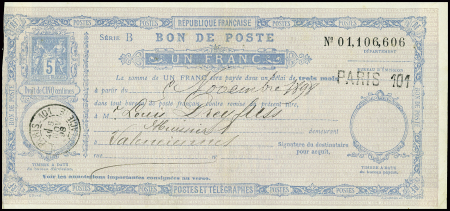 POSTES RÉPUBLIQUE FRANÇAISE POSTES
SÉRIE B BON DE POSTE Nº 01,106,606
UN FRANC
DÉPARTEMENT
5
Droit de CINQ centimes
La somme de UN FRANC sera payée dans un délai de trois mois
PARIS 101
à partir du novembre 1898
dans tout bureau de poste français contre remise du présent titre.
À M. Louis Dreyfuss
demeurant
à Valenciennes
Signature du destinataire
pour acquit.
TIMBRE À DATE
TIMBRE À DATE
Voir les annotations importantes consignées au verso.
POSTES ET TÉLÉGRAPHES